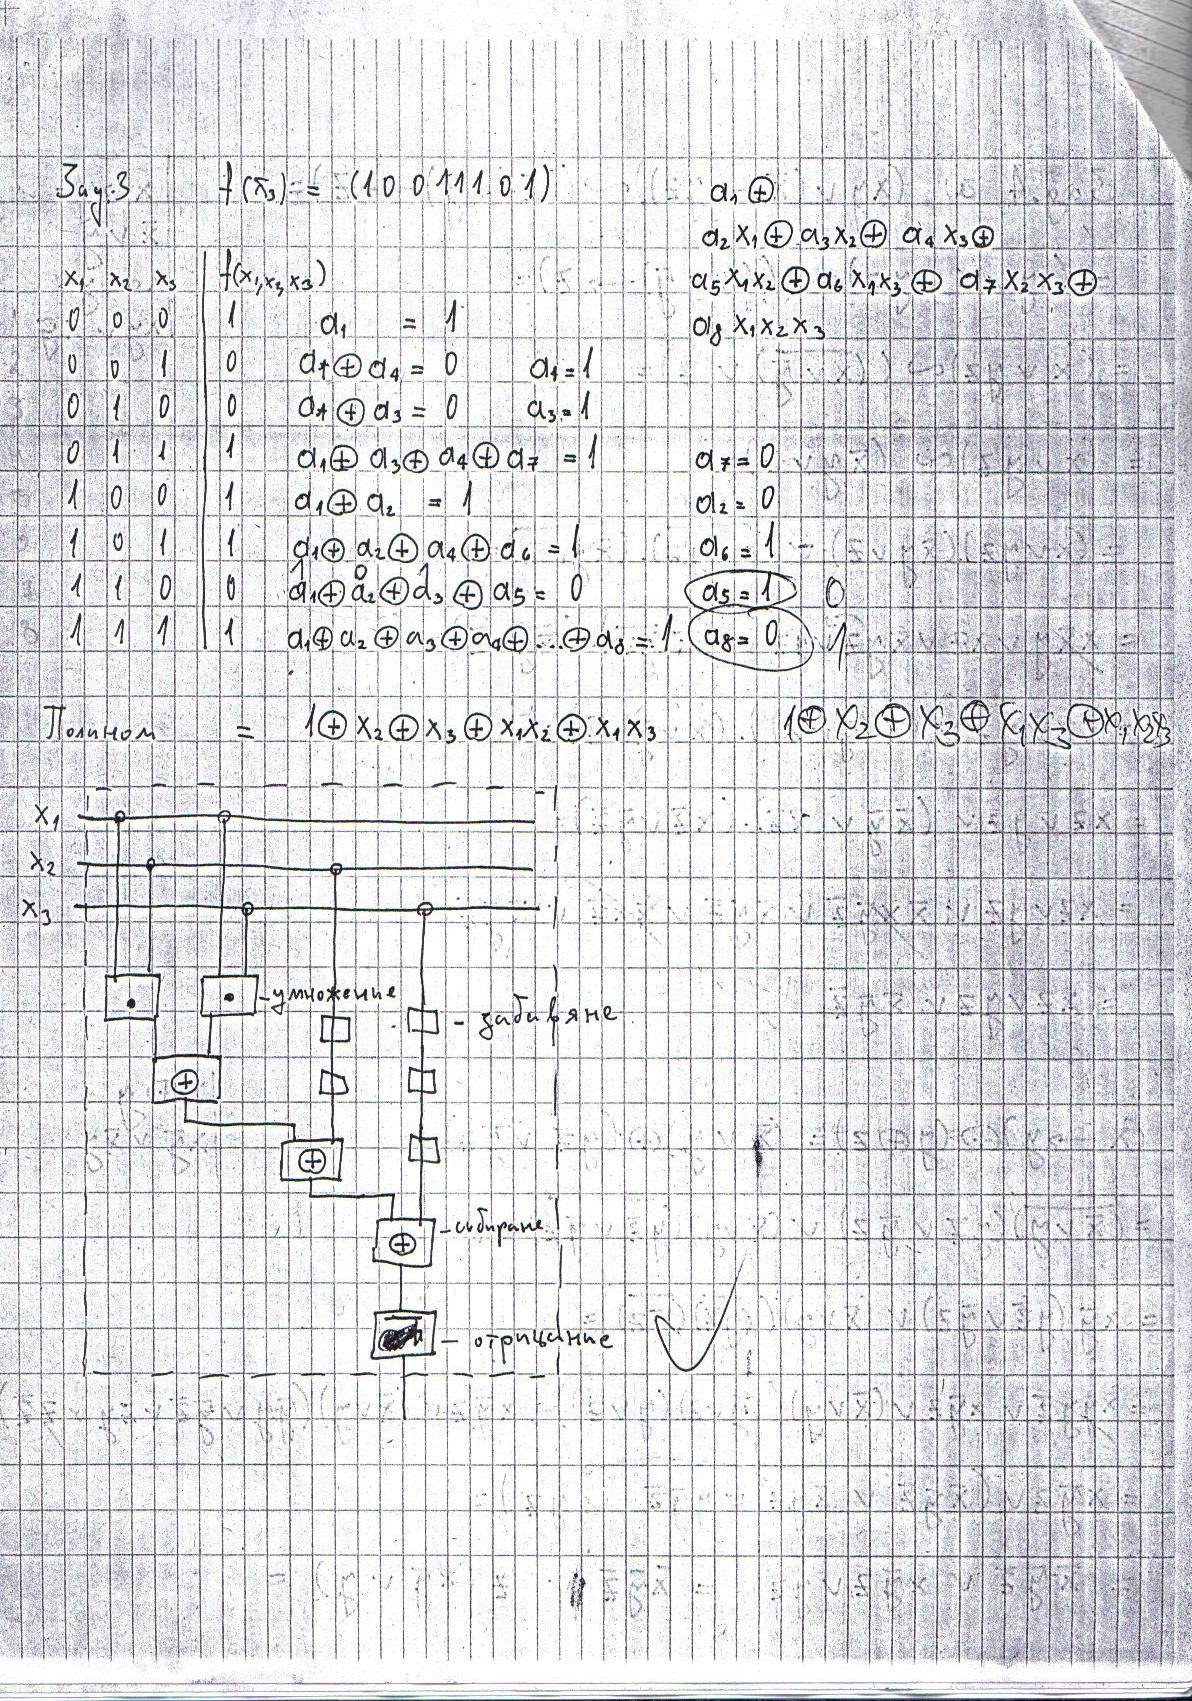 Зад.3 f(x̃₃) = (10011101)
a₁ ⊕
a₂x₁ ⊕ a₃x₂ ⊕ a₄x₃ ⊕
a₅x₁x₂ ⊕ a₆x₁x₃ ⊕ a₇x₂x₃ ⊕
a₈x₁x₂x₃
x₁ x₂ x₃ f(x₁,x₂,x₃)
0 0 0 1 a₁ = 1
0 0 1 0 a₁ ⊕ a₄ = 0 a₄ = 1
0 1 0 0 a₁ ⊕ a₃ = 0 a₃ = 1
0 1 1 1 a₁ ⊕ a₃ ⊕ a₄ ⊕ a₇ = 1 a₇ = 0
1 0 0 1 a₁ ⊕ a₂ = 1 a₂ = 0
1 0 1 1 a₁ ⊕ a₂ ⊕ a₄ ⊕ a₆ = 1 a₆ = 1
1 0 1
1 1 0 0 a₁ ⊕ a₂ ⊕ a₃ ⊕ a₅ = 0 a₅ = 1 0
1 1 1 1 a₁ ⊕ a₂ ⊕ a₃ ⊕ a₄ ⊕ ... ⊕ a₈ = 1 a₈ = 0 1
Полином = 1 ⊕ x₂ ⊕ x₃ ⊕ x₁x₂ ⊕ x₁x₃ 1 ⊕ x₂ ⊕ x₃ ⊕ x₁x₃ ⊕ x₁x₂x₃
x₁
x₂
x₃
· · - умножение
- забавяне
⊕
⊕
⊕ - събиране
- отрицание